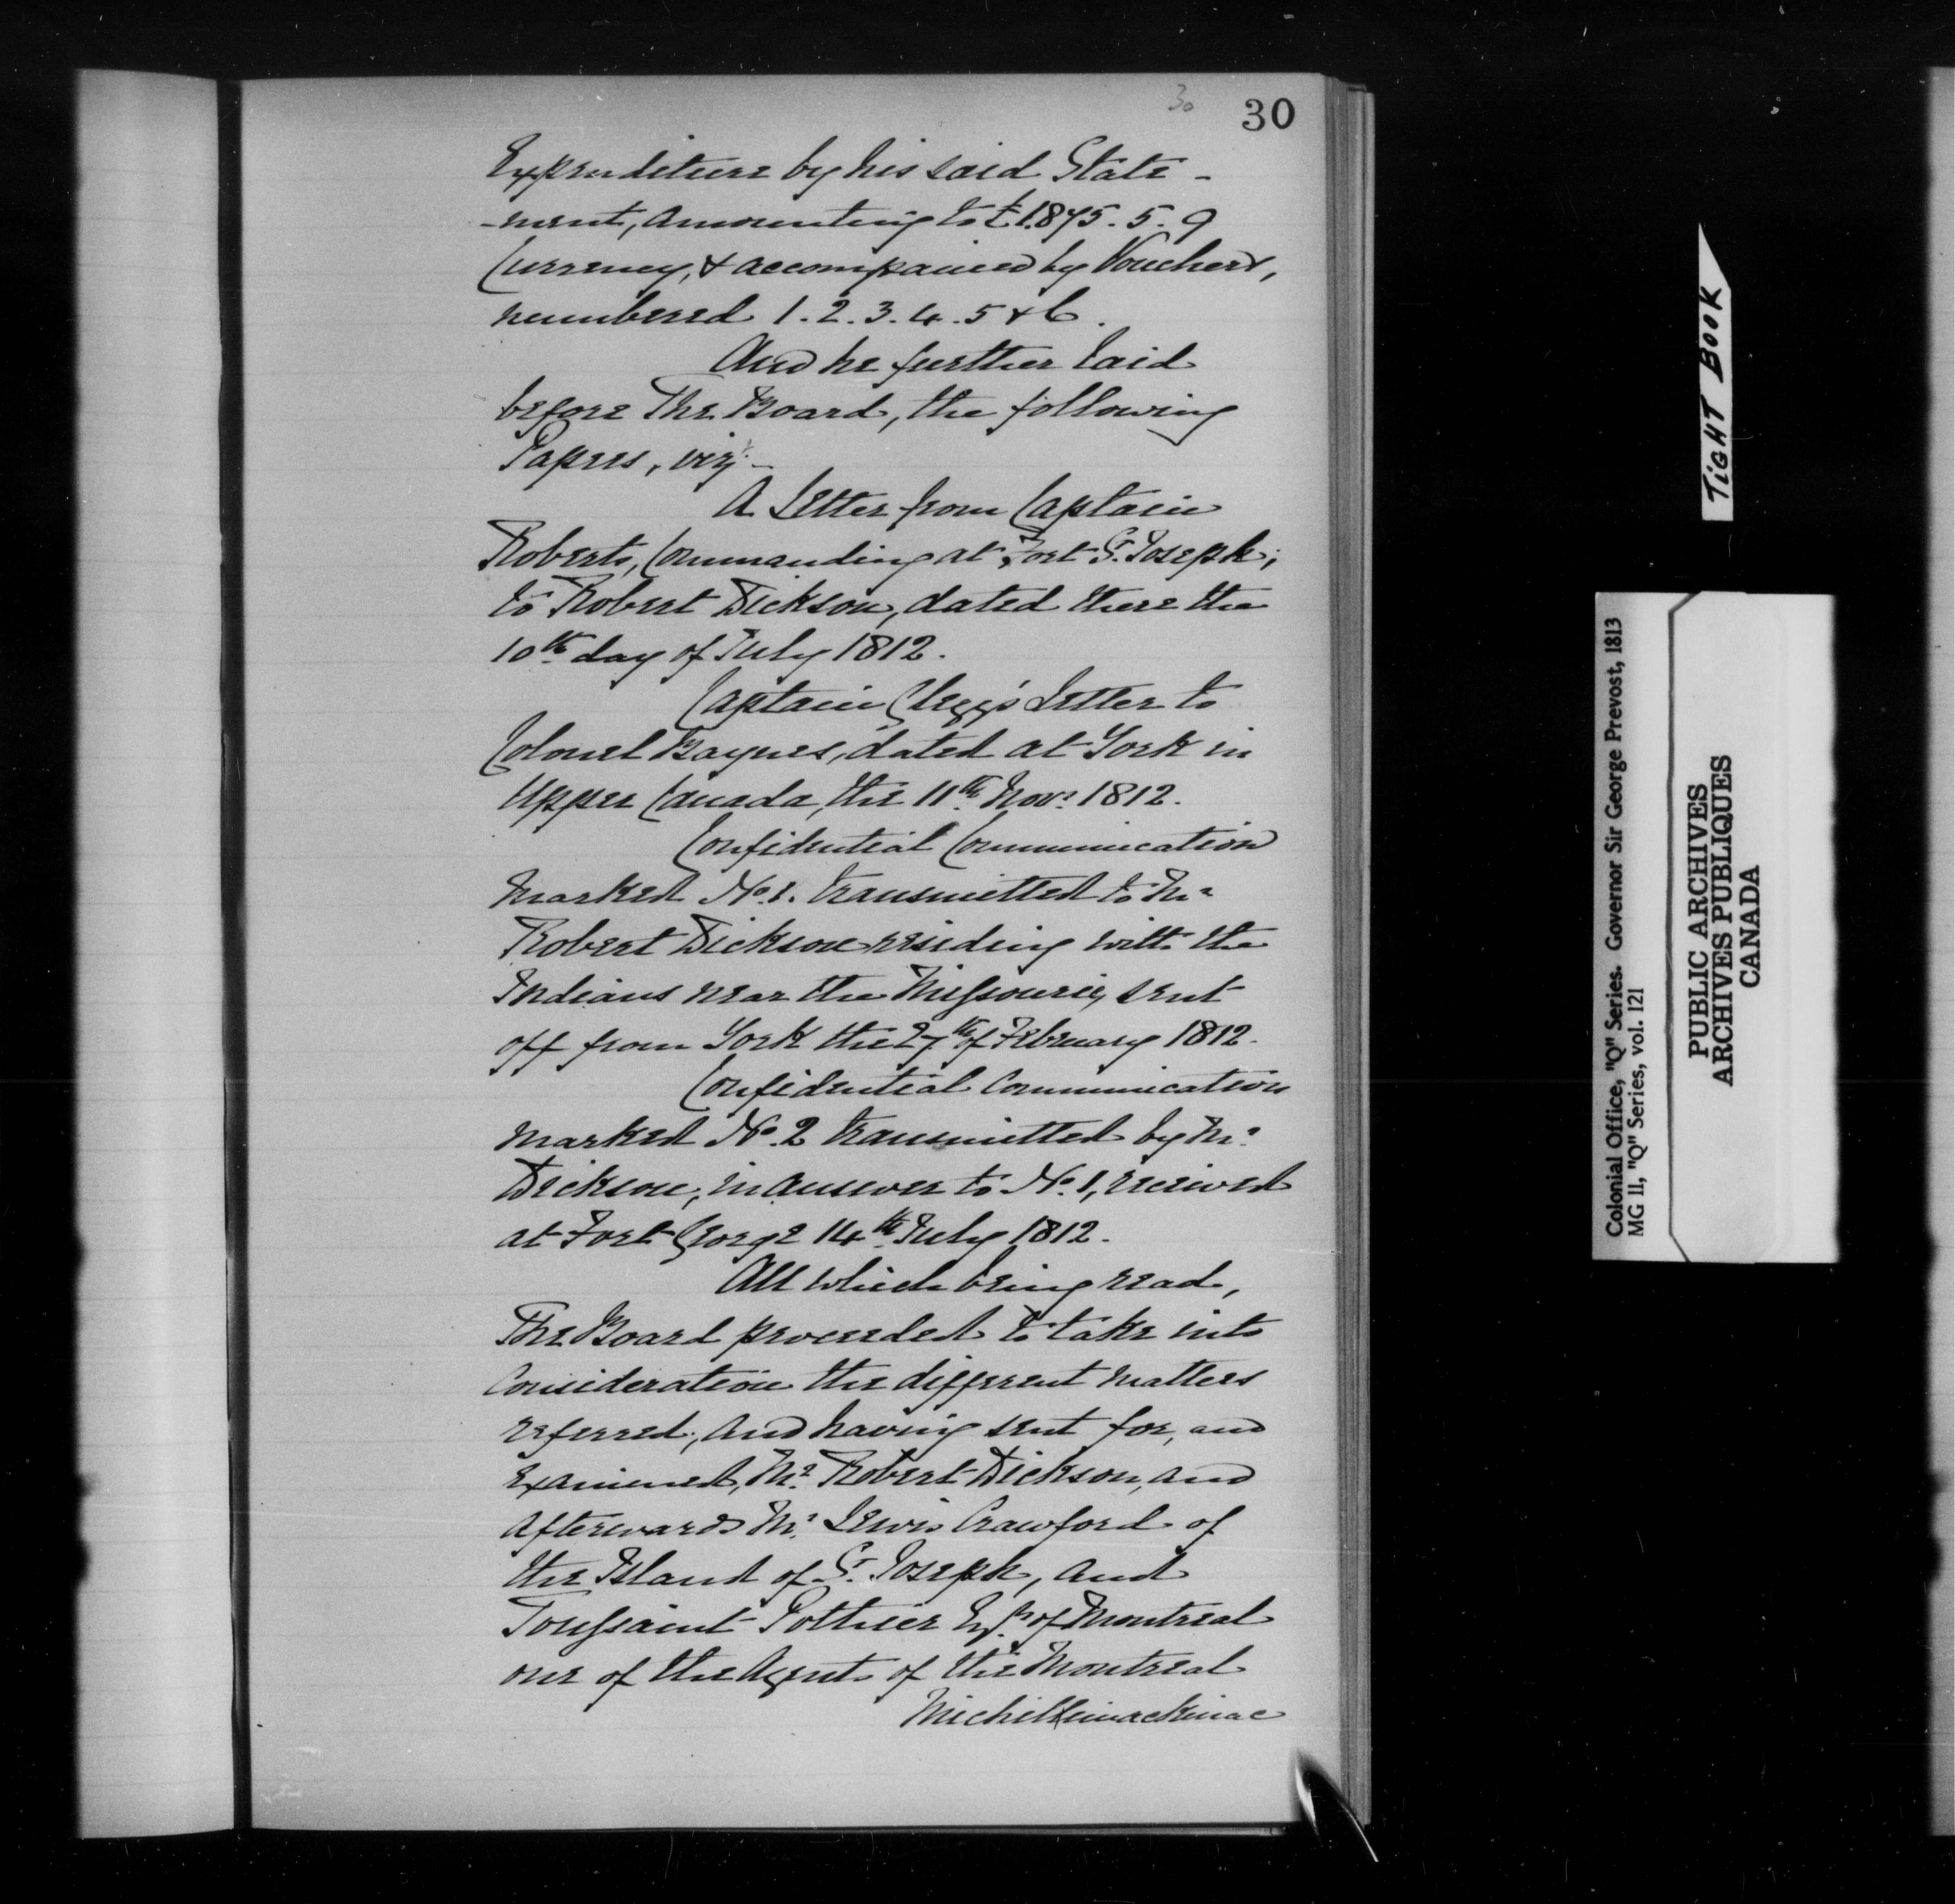 30
30
Expenditure by his said State-
-ment, amounting to £1.875.5.9
Currency, & accompanied by Vouchers,
numbered 1.2.3.4.5 & 6.
And he further laid
before The Board, the following
Papers, vizt.-
A Letter from Captain
Roberts, Commanding at Fort St. Joseph,
to Robert Dickson, dated there the
10th day of July 1812.
Captain Glegg's Letter to
Colonel Baynes, dated at York in
Upper Canada, the 11th Novr. 1812.
Confidential Communication
marked No. 1. transmitted to Mr
Robert Dickson residing with the
Indians near the Missourie, sent
off from York the 27th of February 1812.
Confidential Communication
marked No. 2 transmitted by Mr.
Dickson, in answer to No. 1, received
at Fort George 14th July 1812.
All which being read,
The Board proceeded to take into
Consideration the different matters
referred; and having sent for, and
Examined, Mr. Robert Dickson, and
afterwards Mr. Lewis Crawford of
the Island of St. Joseph, and
Toussaint Pothier Esqr. of Montreal
one of the Agents of the Montreal
Michillimackinac
TIGHT BOOK
Colonial Office, "Q" Series. Governor Sir George Prevost, 1813
MG 11, "Q" Series, vol. 121
PUBLIC ARCHIVES
ARCHIVES PUBLIQUES
CANADA